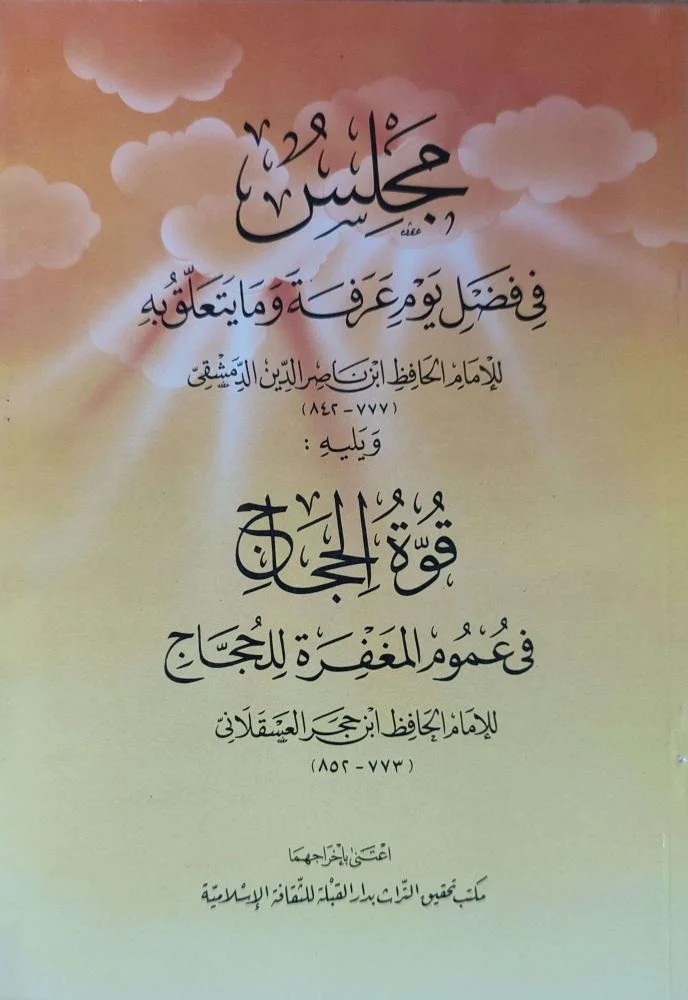 مَجْلِسٌ
فِي فَضْلِ يَوْمِ عَرَفَةَ وَمَا يَتَعَلَّقُ بِهِ
لِلإمَامِ الحَافِظِ ابْنِ نَاصِرِ الدِّينِ الدِّمَشْقِيّ
(٧٧٧ - ٨٤٢)
وَيَلِيهِ :
قُوَّةُ الحِجَاجِ
فِي عُمُومِ المَغْفِرَةِ لِلْحُجَّاجِ
لِلإمَامِ الحَافِظِ ابْنِ حَجَرِ العَسْقَلَانِيّ
(٧٧٣ - ٨٥٢)
اعْتَنَى بِإخْرَاجِهِمَا
مكتب تحقيق التّراث بدار القِبْلة للثّقافة الإسْلاميّة